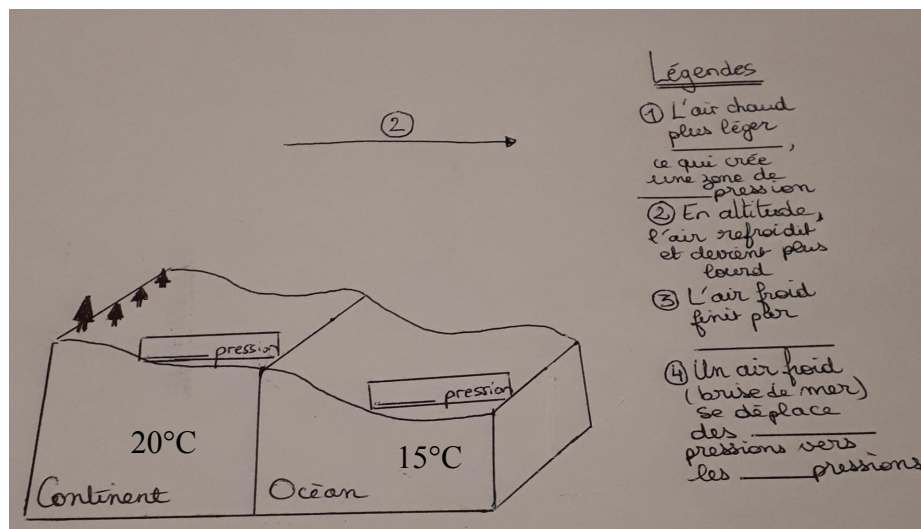 ②
_____ pression
_____ pression
20°C
15°C
Continent
Océan
Légendes
① L'air chaud
plus léger
_____,
ce qui crée
une zone de
_____ pression
② En altitude,
l'air refroidit
et devient plus
lourd
③ L'air froid
finit par
_____
④ Un air froid
(brise de mer)
se déplace
des _____
pressions vers
les _____ pressions